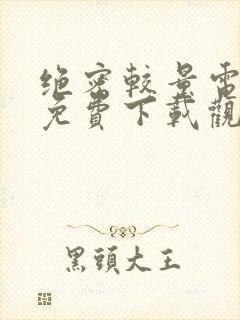 绝密較量電
免費下載觀
黑頭大王